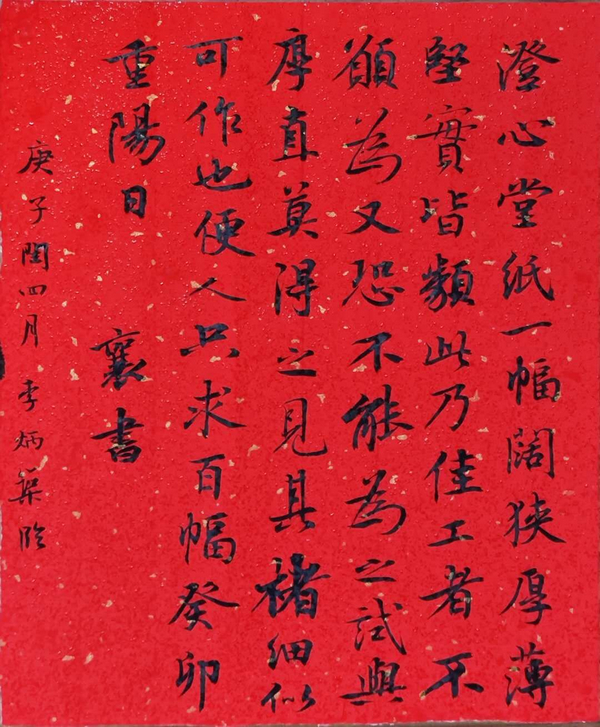 澄心堂紙一幅闊狹厚薄
堅實皆類此乃佳工者不
願為又恐不能為之試與
厚直莫得之見其楮細似
可作也便人只求百幅癸卯
重陽日 襄書
庚子閏四月 李炳臨